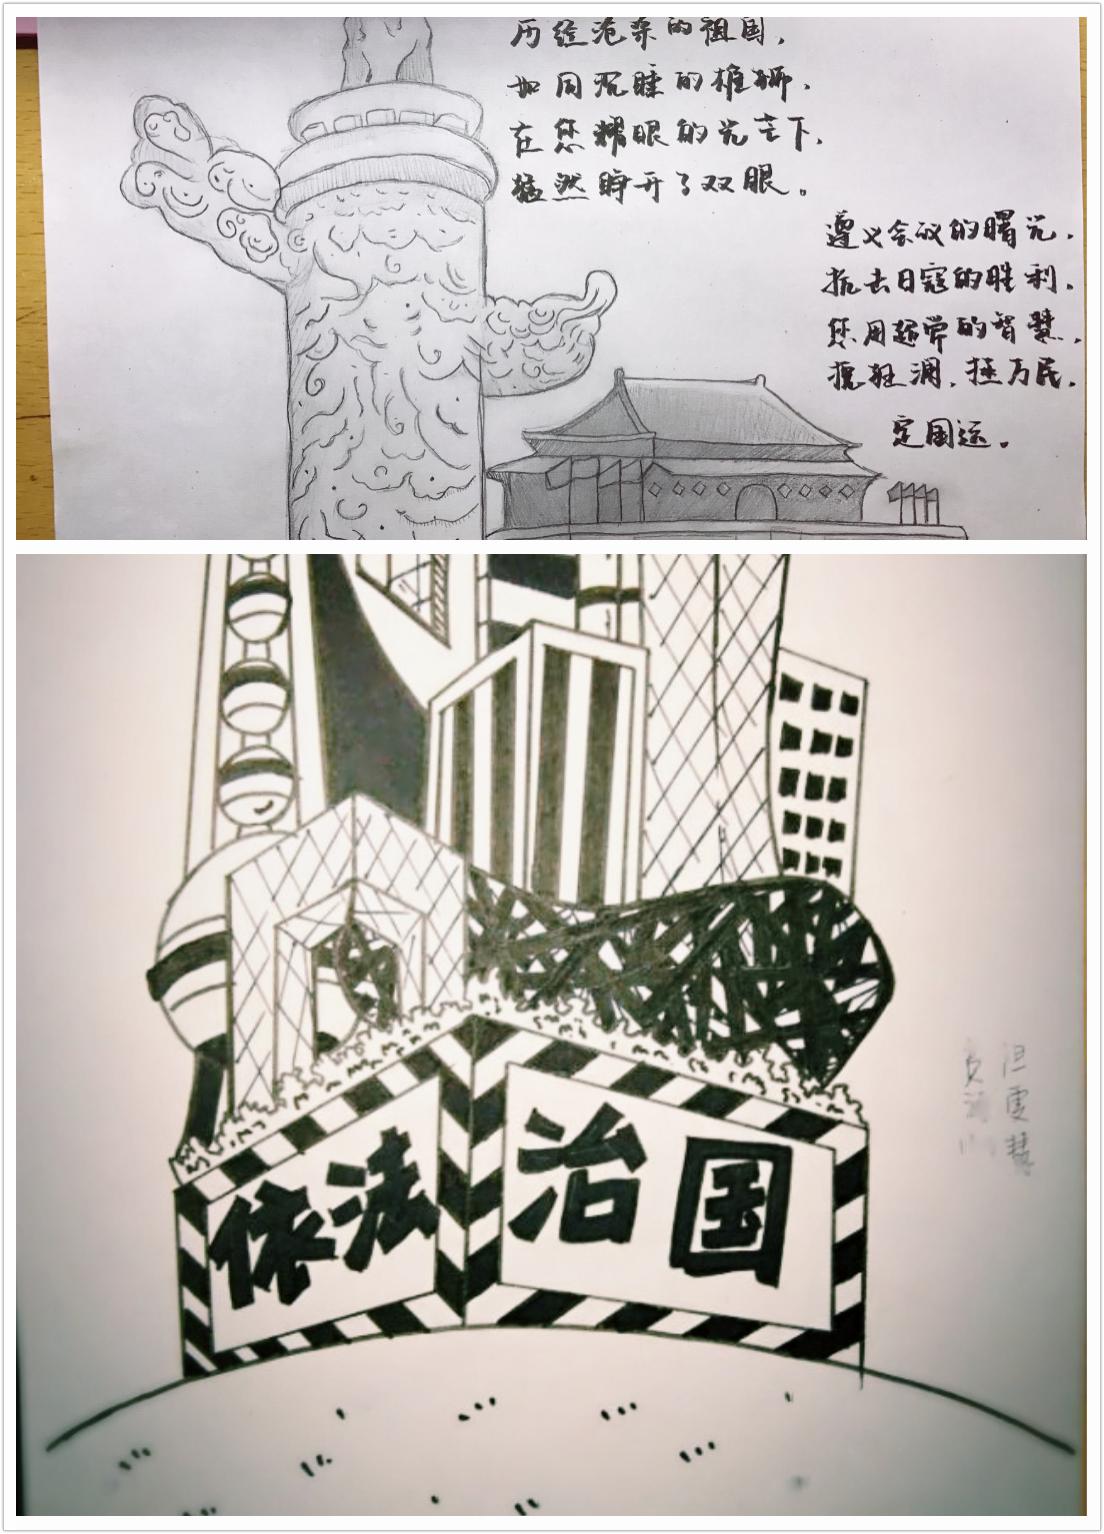 历经沧桑的祖国，
如同沉睡的雄狮，
在您耀眼的光芒下，
猛然睁开了双眼。
遵义会议的曙光，
抗击日寇的胜利，
您用超常的智慧，
挽狂澜，拯万民，
定国运。
依法治国